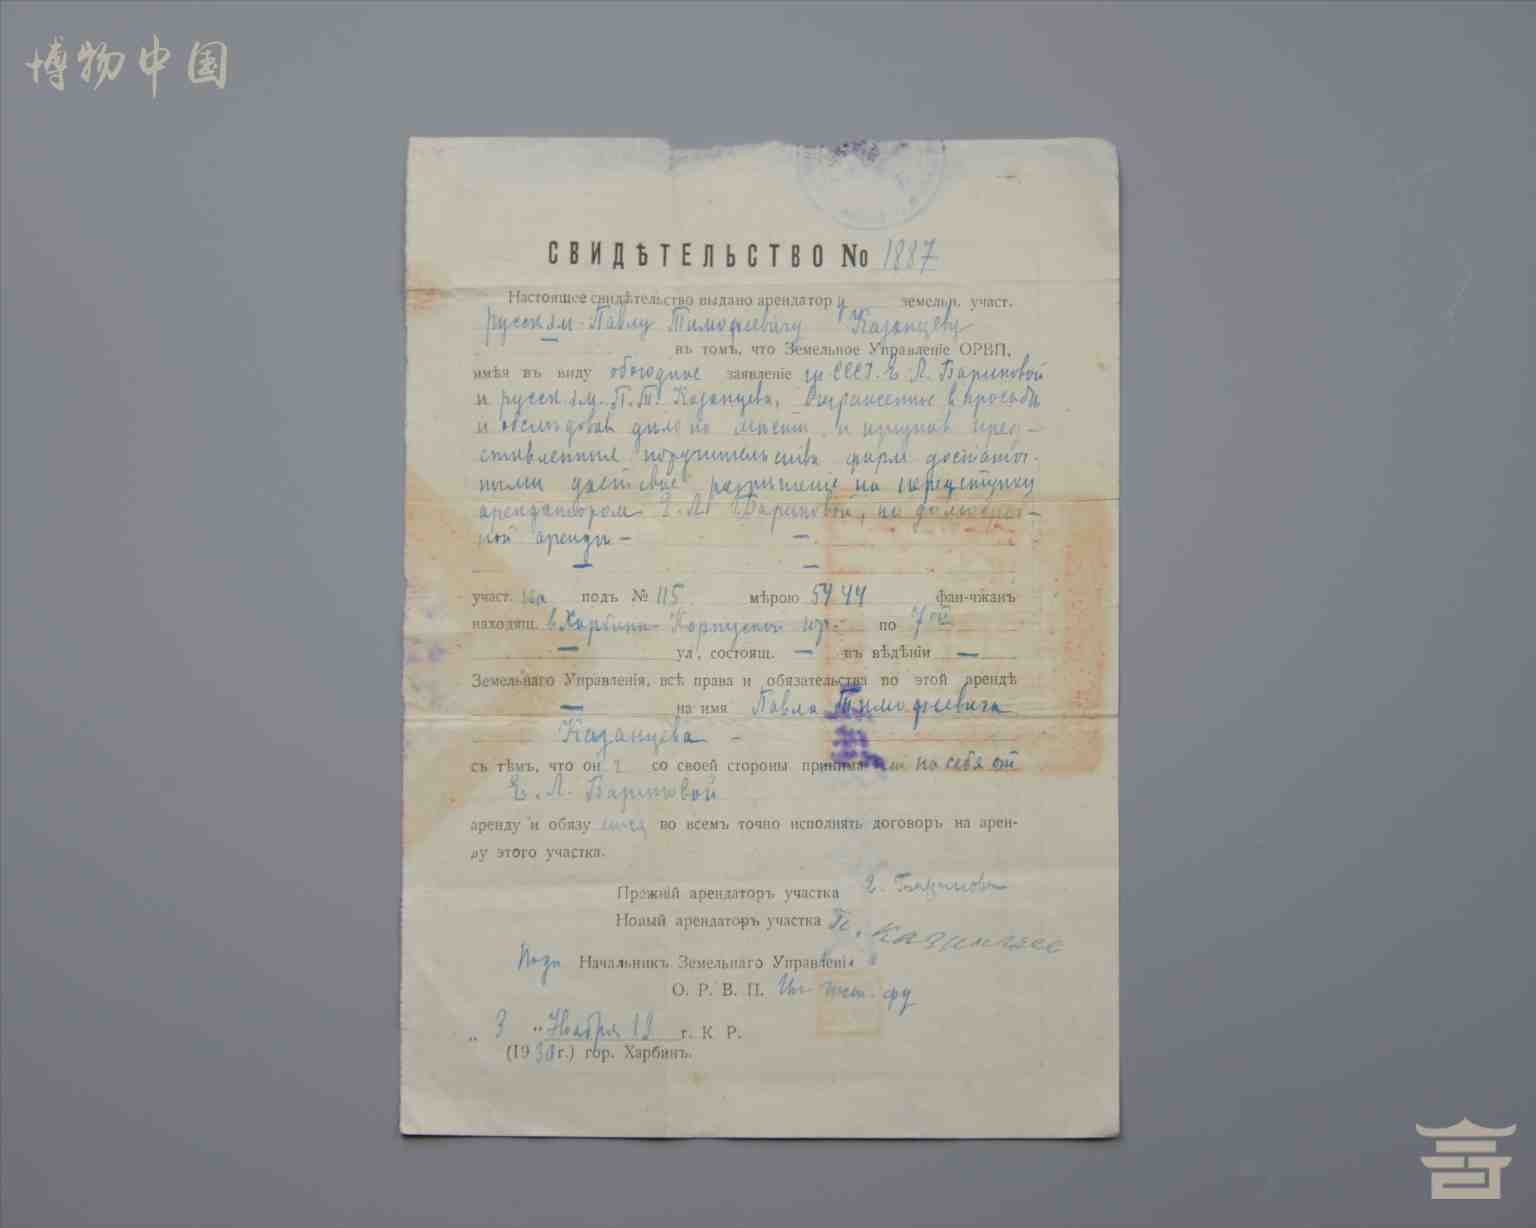 博物中国
СВИДѢТЕЛЬСТВО No 1887
Настоящее свидѣтельство выдано арендатору земельн. участ.
русск Павлу Тимофеевичу Казанцеву
въ томъ, что Земельное Управленіе ОРВП,
имѣя въ виду обогодное заявленіе гр СССР. Е. Л. Бариновой
и русск эм. П. Т. Казанцева,
и обследовав дело на месте и
ставленныя поручительства фирм достаточ-
ными дает свое разрешение на переуступку
арендатором Е. Л. Бариновой, по долгосроч-
ной аренды –
участ. ка подъ № 115 мѣрою 5444 фан-чжанъ
находящ. в Харбине Корпусном гор. по 7ой
– ул, состоящ. – въ вѣдѣніи –
Земельнаго Управленія, всѣ права и обязательства по этой арендѣ
– на имя Павла Тимофеевича
Казанцева –
съ тѣмъ, что он со своей стороны принимает на себя от
Е. Л. Бариновой
аренду и обязуется во всемъ точно исполнять договоръ на арен-
ду этого участка.
Прежній арендаторъ участка Е. Баринова
Новый арендаторъ участка П. Казанцев
Начальникъ Земельнаго Управленія
О. Р. В. П.
„ 3 “ Ноября 19 г. К Р.
(1930 г.) гор. Харбинъ.